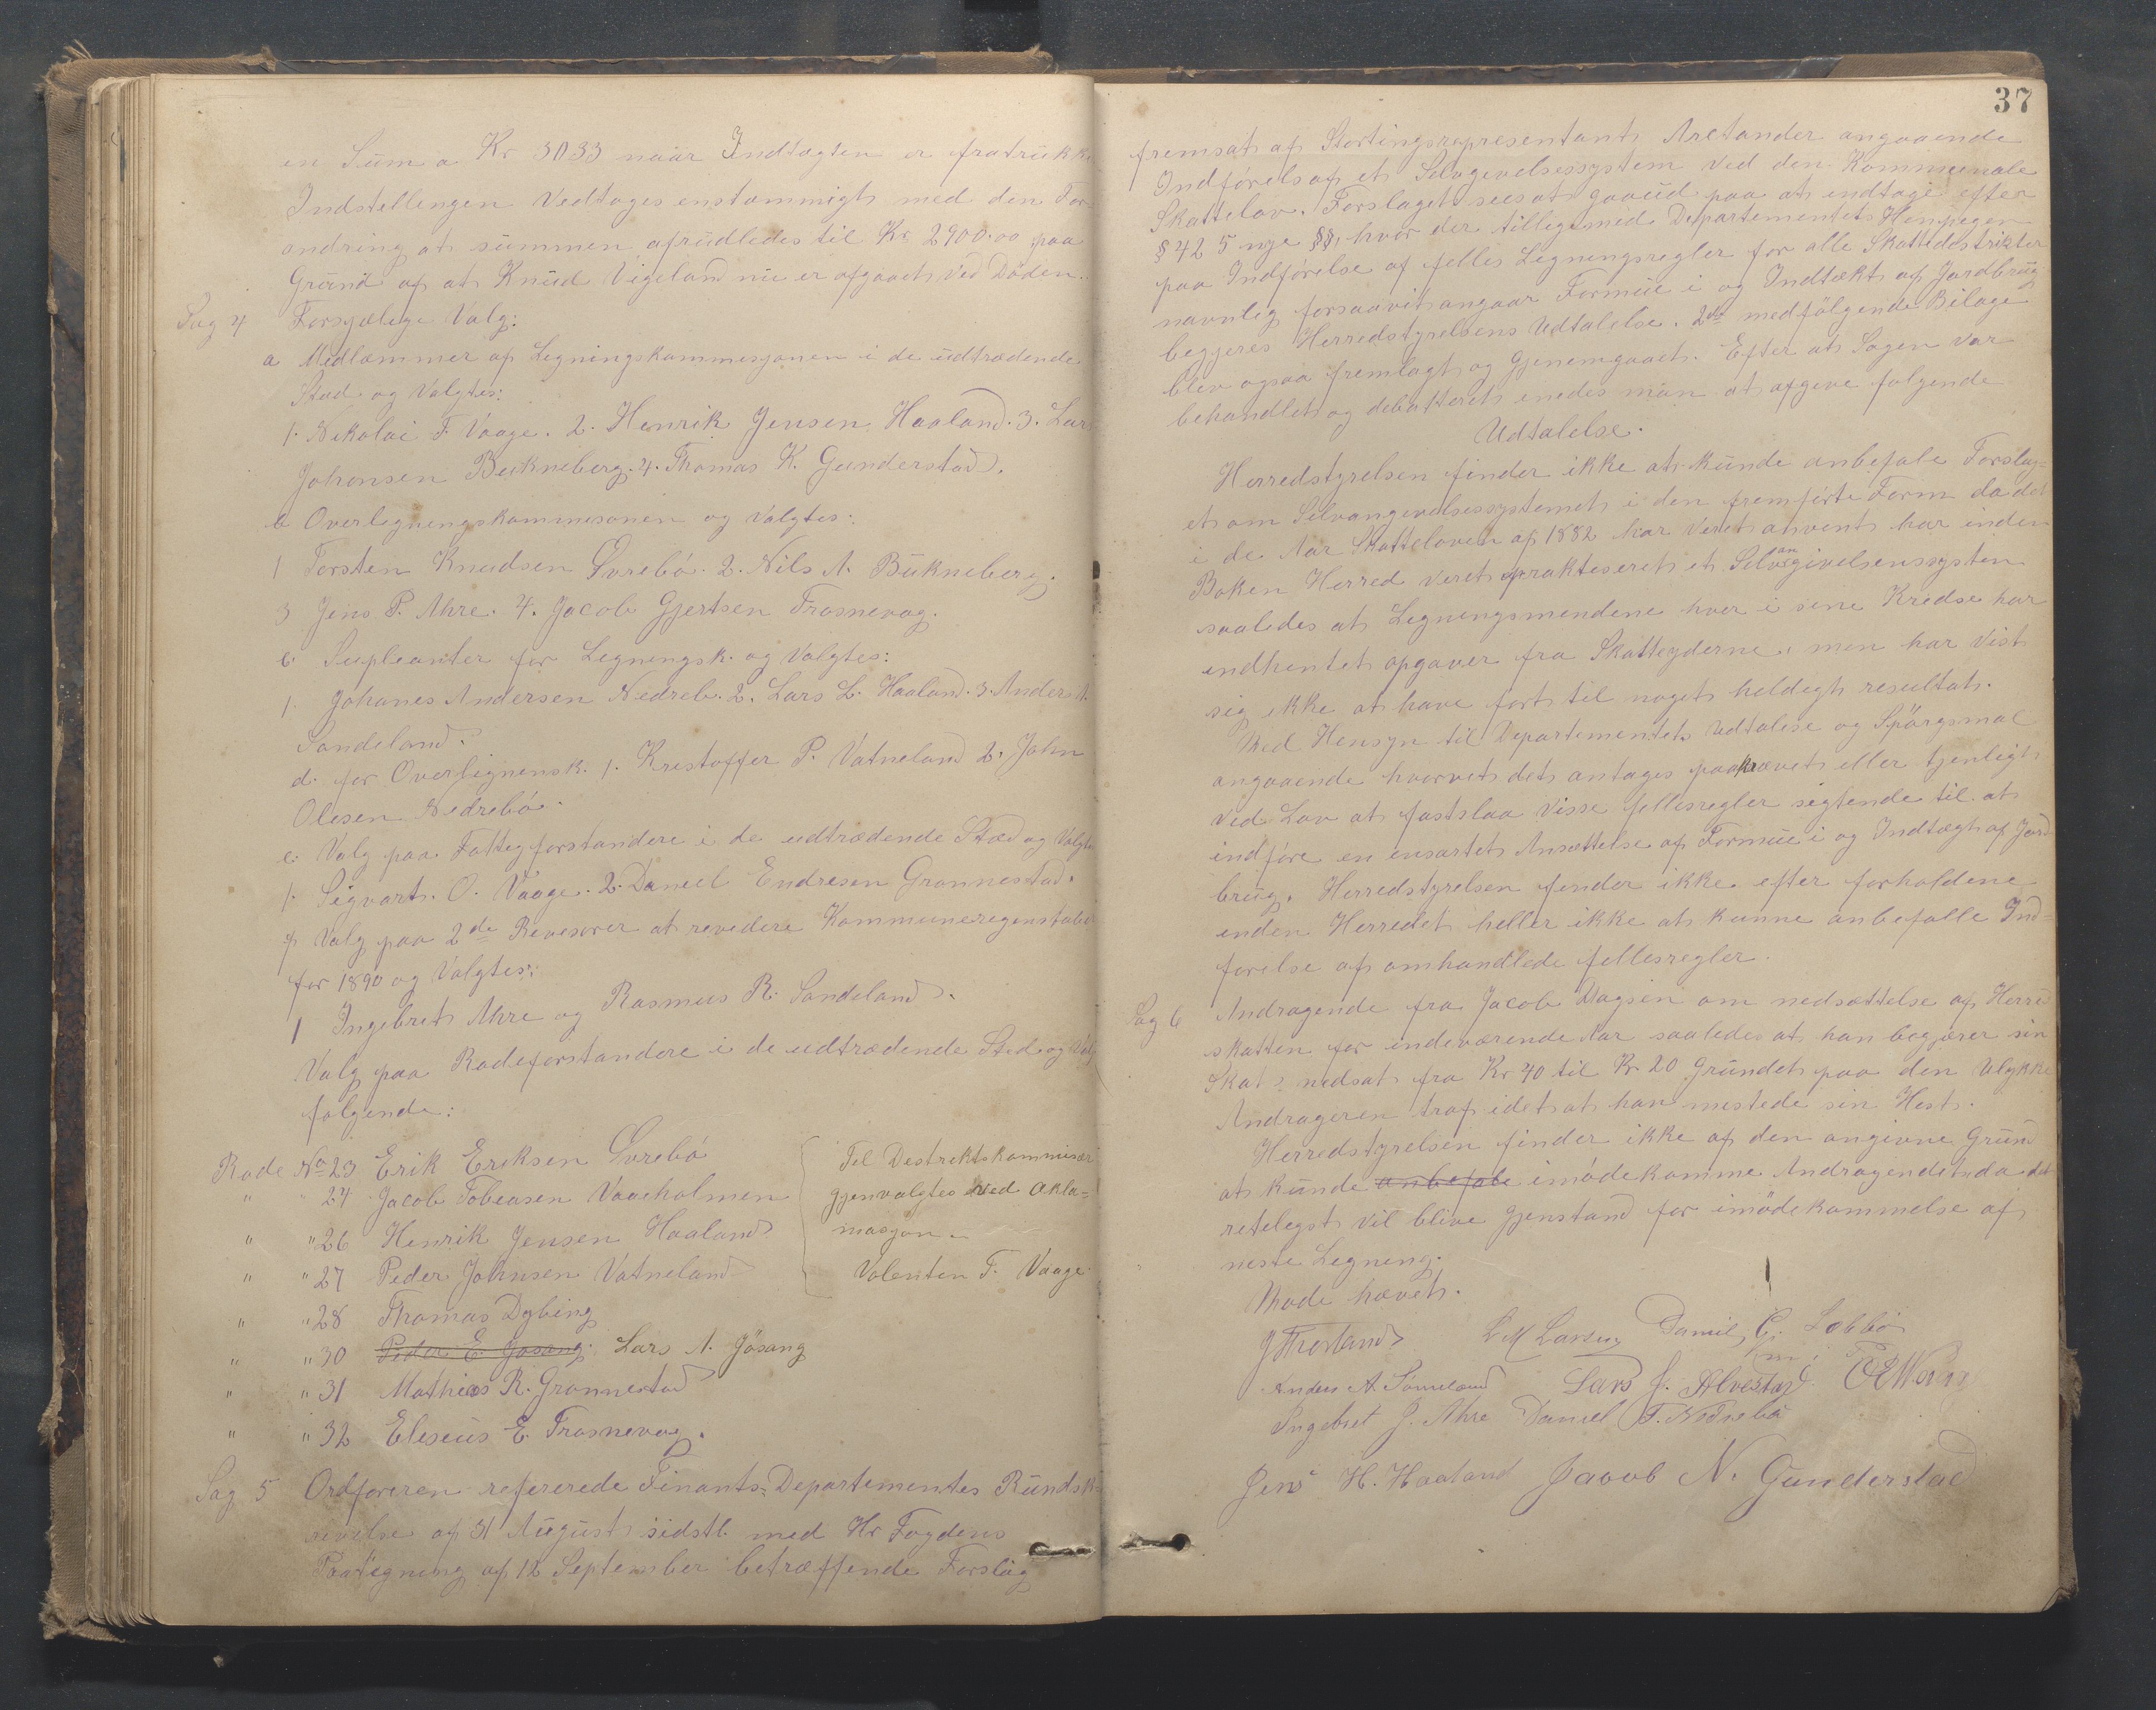 en Sum a Kr 3033 naar Indtægten er fratrukk
Indstellingen Vedtages enstæmmigt med den For
andring at summen afrundledes til Kr 2900.00 paa
Grund af at Knud Vigeland nu er afgaaet Ved Döden.
Sag 4 Forsjælige Valg:
a Medlæmmer af Legningskommesjonen i de udtrædende
Stæd og Valgtes:
1. Nekolai F. Vaage. 2. Henrik Jensen Haaland. 3. Lars
Johansen Bukneberg. 4. Thomas K. Gunderstad.
b Overlegnengskommesonen og Valgtes:
1 Torsten Knudsen Övrebö. 2. Nils A. Bukneberg.
3 Jens P. Ahre. 4. Jacob Gjertsen Frasnevag.
c. Supleanter for Legningsk. og Valgtes:
1. Johanes Andersen Nedreb. 2. Lars L. Haaland. 3. Anders A.
Sandeland.
d. for Overligninsk. 1. Kristoffer P. Vatneland 2. John
Olesen Nedrebö.
e. Valg paa Fattegforstandere i de udtrædende Stæd og Valgte
1. Sigvart. O. Vaage. 2. Daneel Endresen Grannestad.
f Valg paa 2de Revesorer at revedere Kommuneregenskabet
for 1890 og Valgtes:
1 Ingebret Ahre og Rasmus R. Sandeland.
Valg paa Rodeforstandere i de udtrædende Sted og Valg
følgende:
Rode No 23 Erik Ereksen Övrebö
" " 24 Jacob Tobeasen Vaaeholmen
" " 26 Henrik Jensen Haaland
" " 27 Peder Johnsen Vatneland
" " 28 Thomas Dybing
" " 30 Peder E. Jøsang. Lars A. Jösang
" " 31 Mathias R. Grannestad
" " 32 Eleseus E. Frasnevag.
Tel Destrektskommisær
gjenvalgtes Ved Akla=
masjon.
Valenten F. Vaage
Sag 5 Ordføreren refererede Finants=Departementes Rundsk
revelse af 31 August sidstl. med Hr Fogdens
Paategning af 12 September betræffende Forslag
37
fremsat af Stortingsrepresentant Aretander angaaende
Indförels af et Selvgevelsessystem Ved den Kommunale
Skattelov. Forslaget sees at gaa ud paa at endtage efter
§ 42 5 nye §§, hvor der tilligemed Departementets Henpegen
paa Indförelse af felles Legningsregler for alle Skattedistrikter
navnlig forsaavit angaar Formue i og Indtækt af Jordbrug
begjeres Herredstyrelsens Udtalelse. 2de medfölgende Bilage
blev ogsaa fremlagt og Gjenemgaaet. Efter at Sagen var
behandlet og debatteret enedes man at afgeve følgende
Udtalelse.
Herredstyrelsen finder ikke at kunde anbefale Forslag=
et om Selvangevelsessystemet i den fremförte Form da det
i de Aar Skatteloven af 1882 har Veret anvent har inden
Boken Herred veret prakteseret et Selvangivelsenssystem
saaledes at Legnengsmendene hver i sine Kredse har
endhentet opgaver fra Skatteyderne, men har Vist
sig ikke at have ført til noget heldegt resultat.
Med Hensyn til Departementets Udtalese og Spörgsmal
angaaende hvorvet det antages paakrævet eller tjenligt
Ved Lov at fastslaa Visse fellesregler sigtende til at
indføre en ensartet Ansættelse af Formue i og Indtægt af Jord
brug. Herredstyrelsen fender ikke efter forholdene
enden Herredet heller ikke at kunne anbefalle Ind=
førelse af omhandlede fellesregler.
Sag 6 Andragende fra Jacob Dagsen om nedsættelse af Herre
skatten for indeværende Aar saaledes at han begjærer sin
Skat nedsat fra Kr 40 til Kr 20 Grundet paa den Ulykke
Andrageren traf idet at han mestede sin Hest.
Herredstyrelsen finder ikke af den angivne Grund
at kunde anbefale imödekomme Andragendet da det
retelegst vil blive gjenstand for imödekommelse af
neste Legning.
Møde hævet.
J Thorland L M Larsen Daniel C. Løbbø
Anders A. Sømeland Lars J. Alvestad
Ingebret J. Ahre Daniel F. Nedrebö
Jens H. Haaland Jacob N. Gunderstad